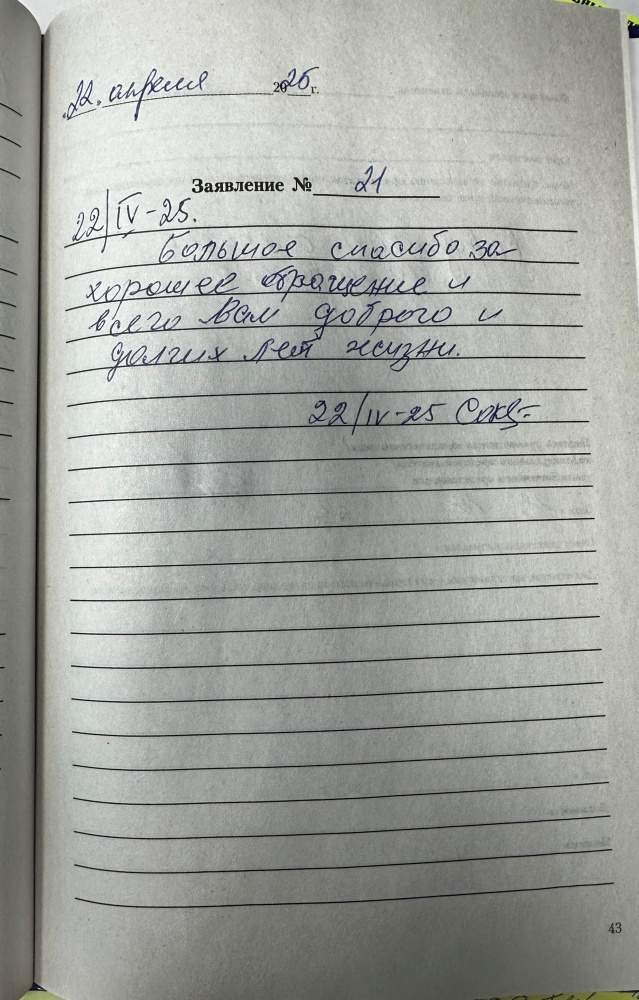 22. апреля 2025 г.
Заявление № 21
22/IV-25.
Большое спасибо за
хорошее обращение и
всего Вам доброго и
долгих лет жизни.
22/IV-25
43